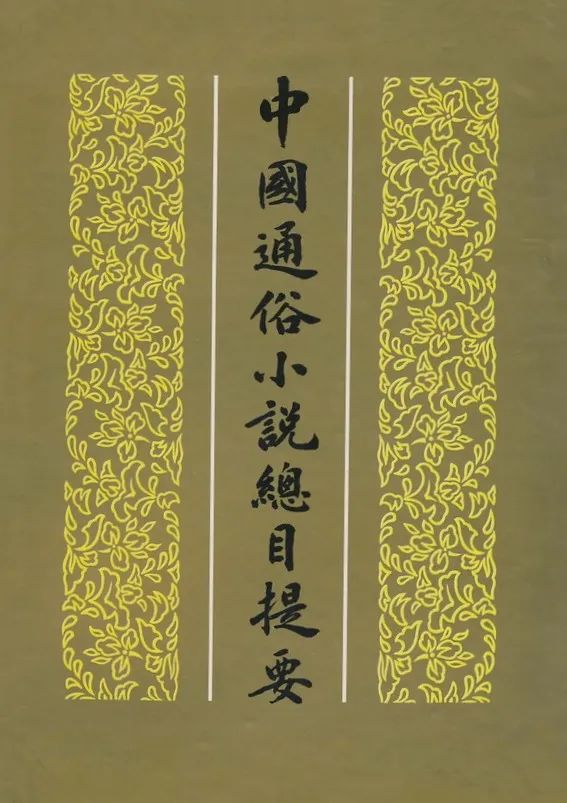 中國通俗小説總目提要